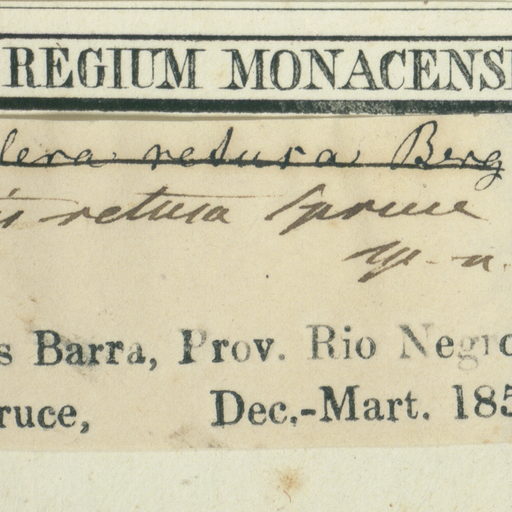 REGIUM MONACENS
lera retusa Berg
is retusa Spruce
s Barra, Prov. Rio Negro
ruce, Dec.-Mart. 185